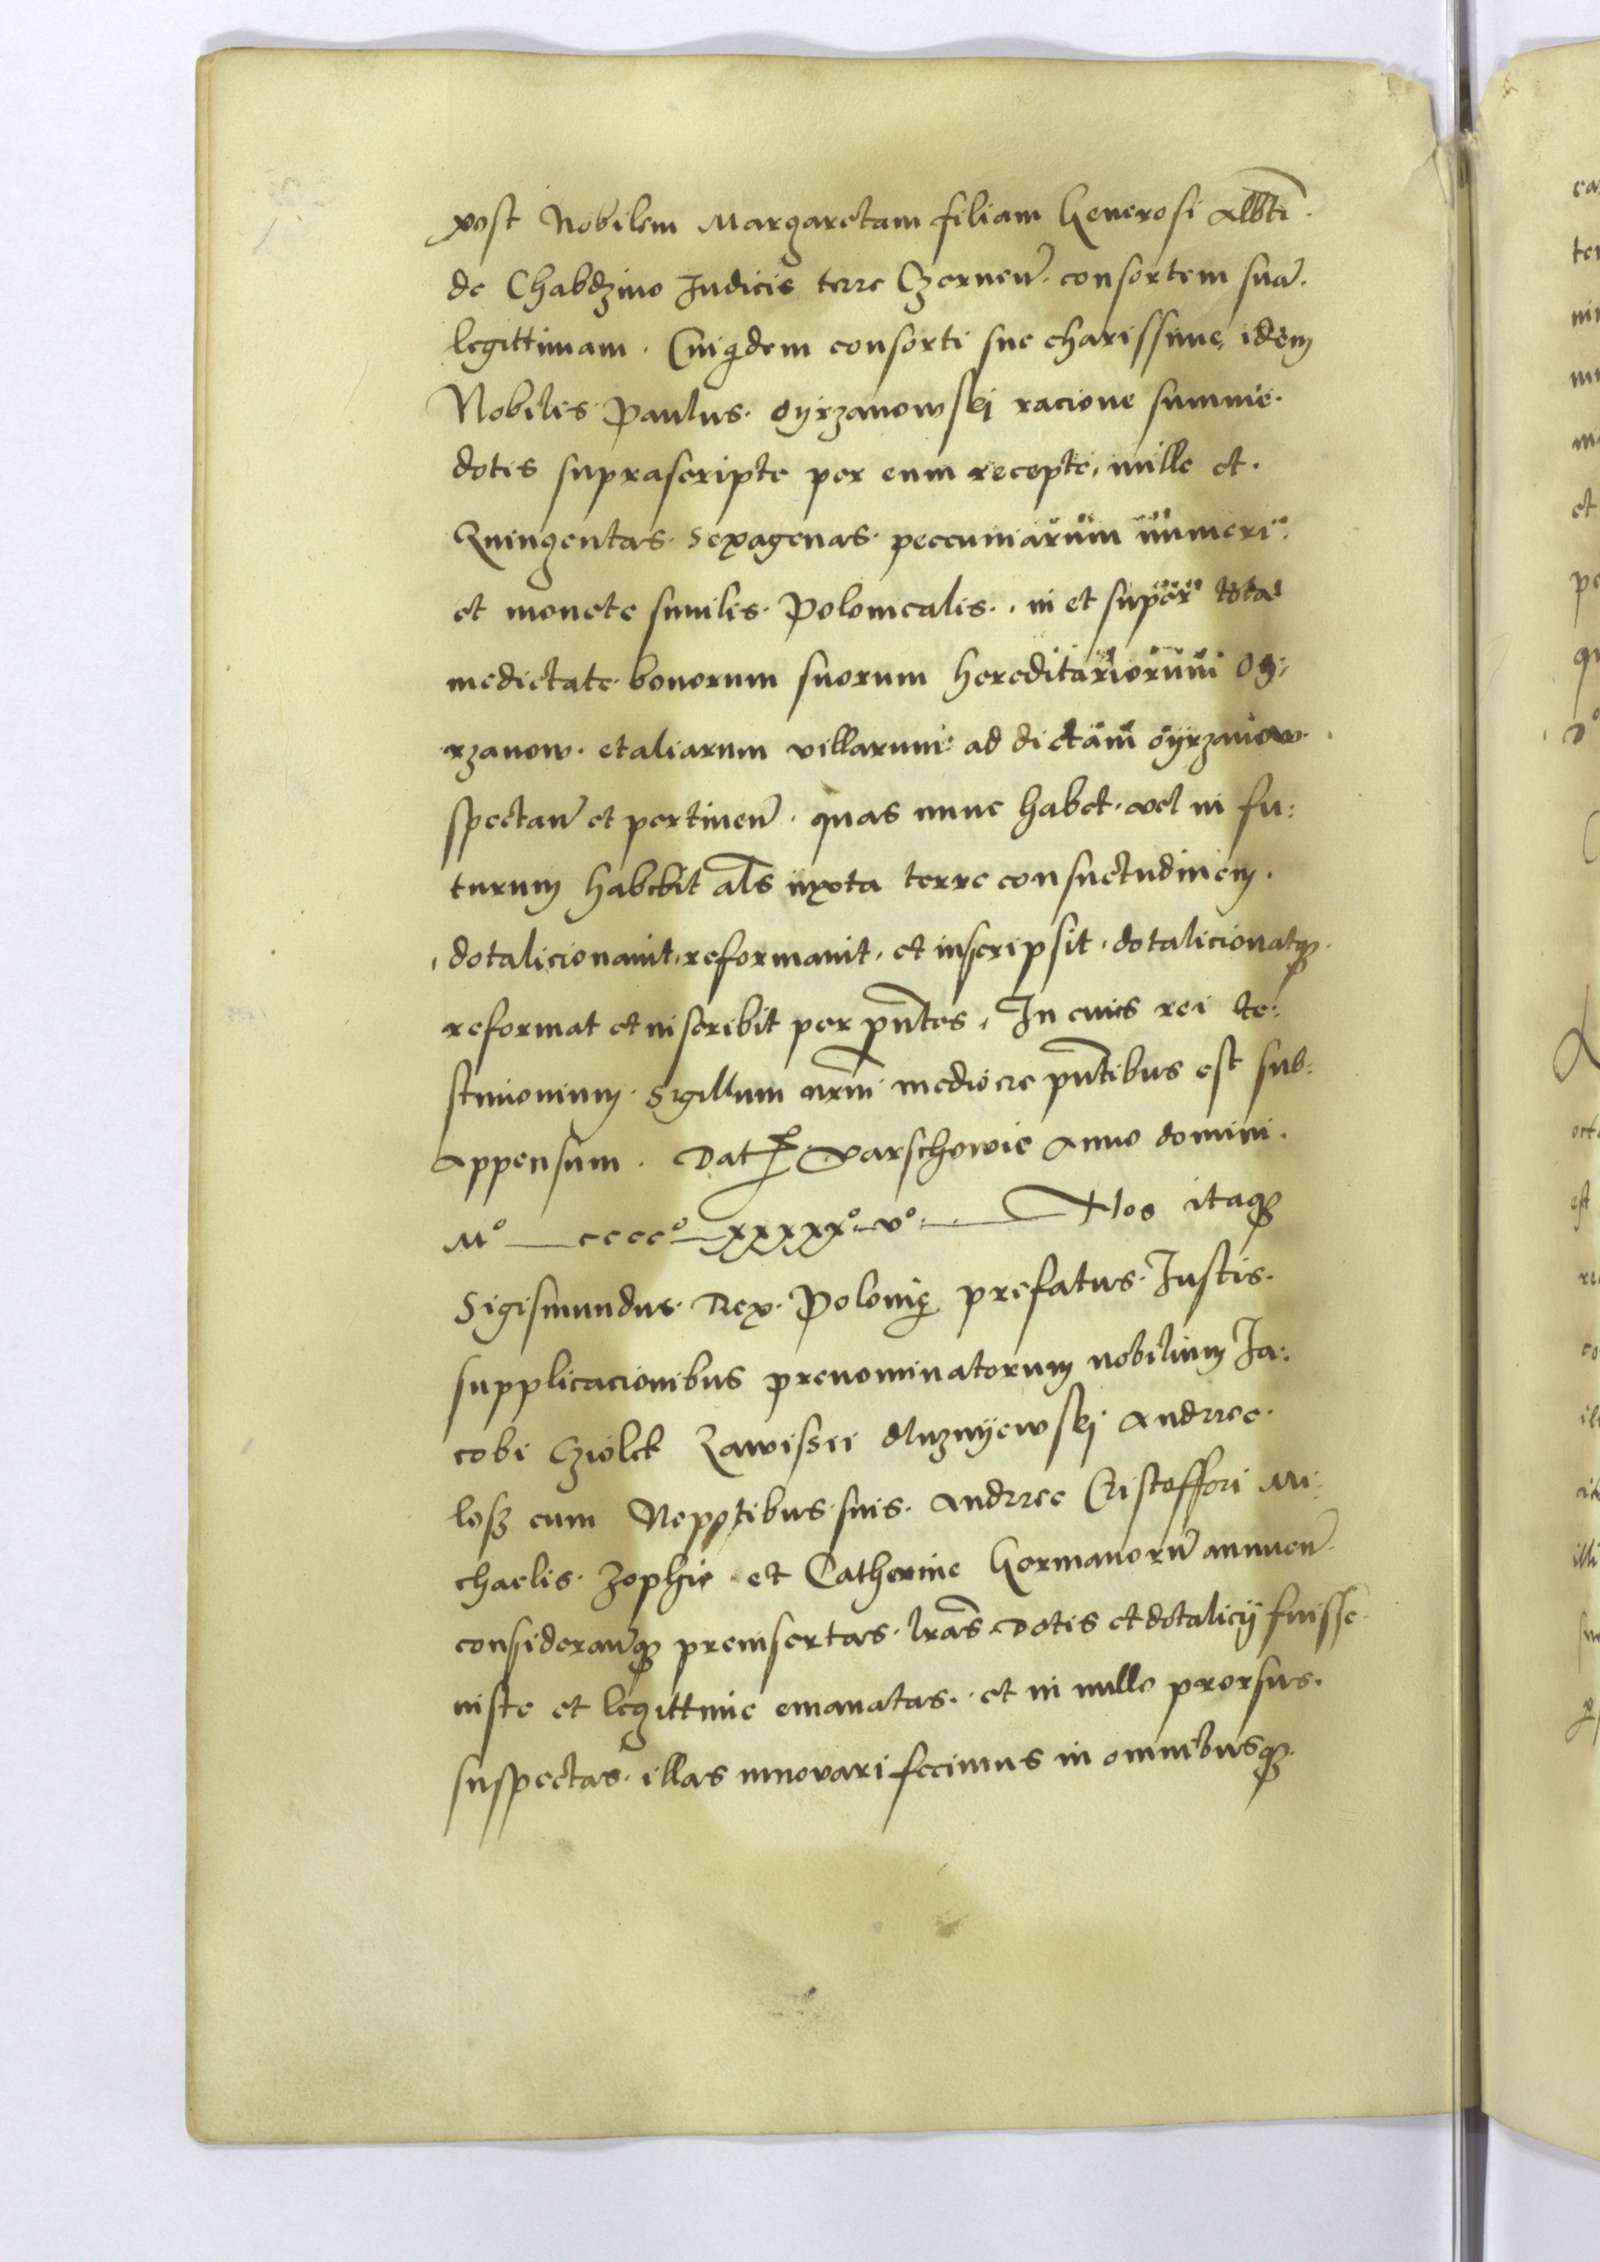 post Nobilem Margaretam filiam Generosi Albti.
de Chabdzino Iudicis terre Czernen. consortem suã.
legittimam. Cuiqdem consorti sue charissime, idem
Nobilis Paulus. Oyrzanowskj racione summe.
dotis suprascripte per eum recepte, mille et.
Quingentas. Sexagenas. peccuniarum numeri.
et monete similis. Polonicalis. in et super tota
medietate bonorum suorum hereditariorum Oy:
rzanow. et aliarum villarum: ad dictam oyrzanow.
spectan et pertinen. quas nunc habet. vel in fu:
turum habebit als iuxta terre consuetudinem.
dotalicionauit, reformauit, et inscripsit, dotalicionatq
reformat et inscribit per pñtes, In cuius rei te:
stimonium. Sigillum nrm mediocre pñtibus est sub:
appensum. Dat Varschowie Anno domini.
Mº cccc º xxxxxº vº. Nos itaq
Sigismundus. Rex. Polonię prefatus. Iustis.
supplicacionibus prenominatorum nobilium Ja:
cobi Cziolek Zawissii Mnyewskj Andree.
losz cum Nepotibus suis. Andree Cristoffori Mi:
chaelis. Zophie et Catherine Germanorũ annuen.
consideranq preinsertas. lras. Dotis et dotalicij fuisse.
iuste et legittime emanatas. et in nullo prorsus.
suspectas. illas innovari fecimus in omnibusq.